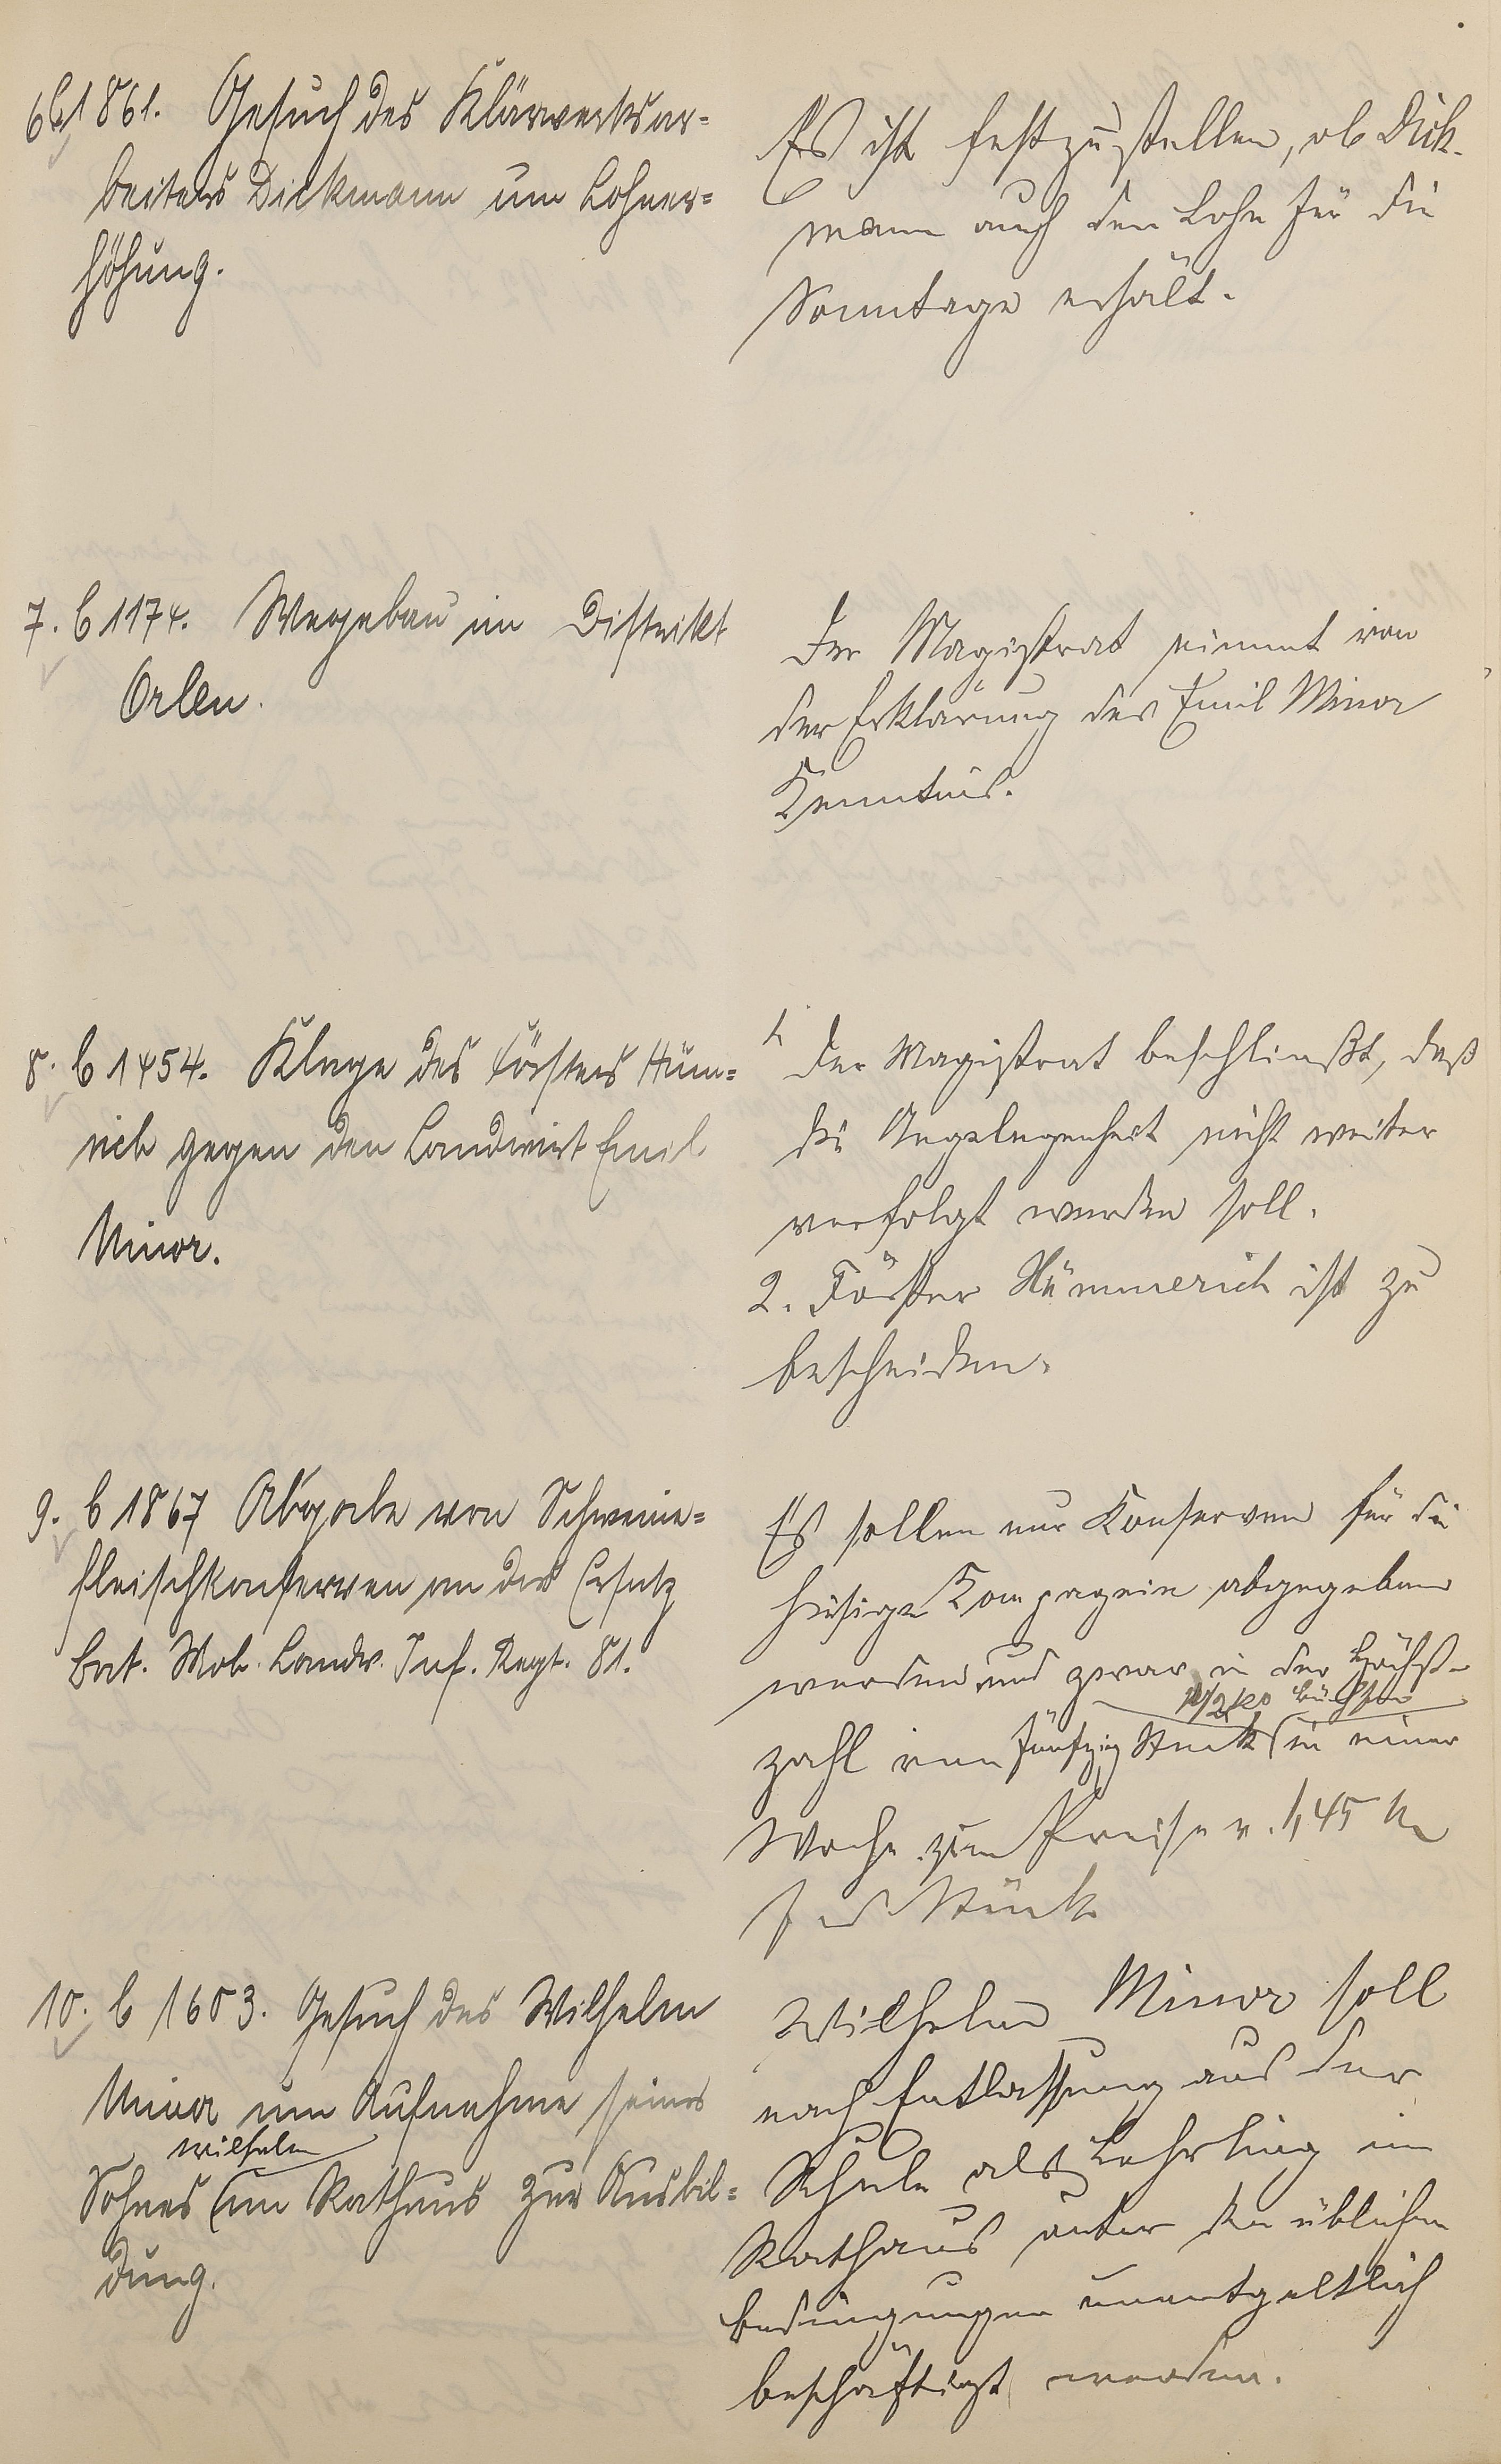 6. b 1861. Gesuch des Klärwerksar=
beiters Dickmann um Lohner=
höhung.
Es ist festzustellen, ob Dick-
mann auch den Lohn für die
Sonntage erhält.
7. b 1174. Wegebau im Distrikt
Orlen.
Der Magistrat nimmt von
der Erklärung des Emil Minor
Kenntnis.
8. b 1454. Klage des Försters Hüm=
rich gegen den Landwirt Emil
Minor.
1. Der Magistrat beschließt, daß
die Angelegenheit nicht weiter
verfolgt werden soll.
2. Förster Hümmerich ist zu
bescheiden.
9. b 1867 Abgabe von Schweine=
fleischkonserven an das Ersatz
Bat. Mob. Landw. Inf. Regt. 81.
Es sollen nur Konserven für die
hiesige Kompagnie abgegeben
werden und zwar in der Höchst-
zahl von fünfzig Stück (in einer
1/2 ko Büchsen
Woche zum Preise v. 1,45 M
das Stück
10. b 1603. Gesuch des Wilhelm
Minor um Aufnahme seines
Wilhelm
Sohnes (im Rathaus zur Ausbil=
dung.
Wilhelm Minor soll
nach Entlassung aus der
Schule als Lehrling im
Rathaus unter den üblichen
Bedingungen unentgeltlich
beschäftigt werden.